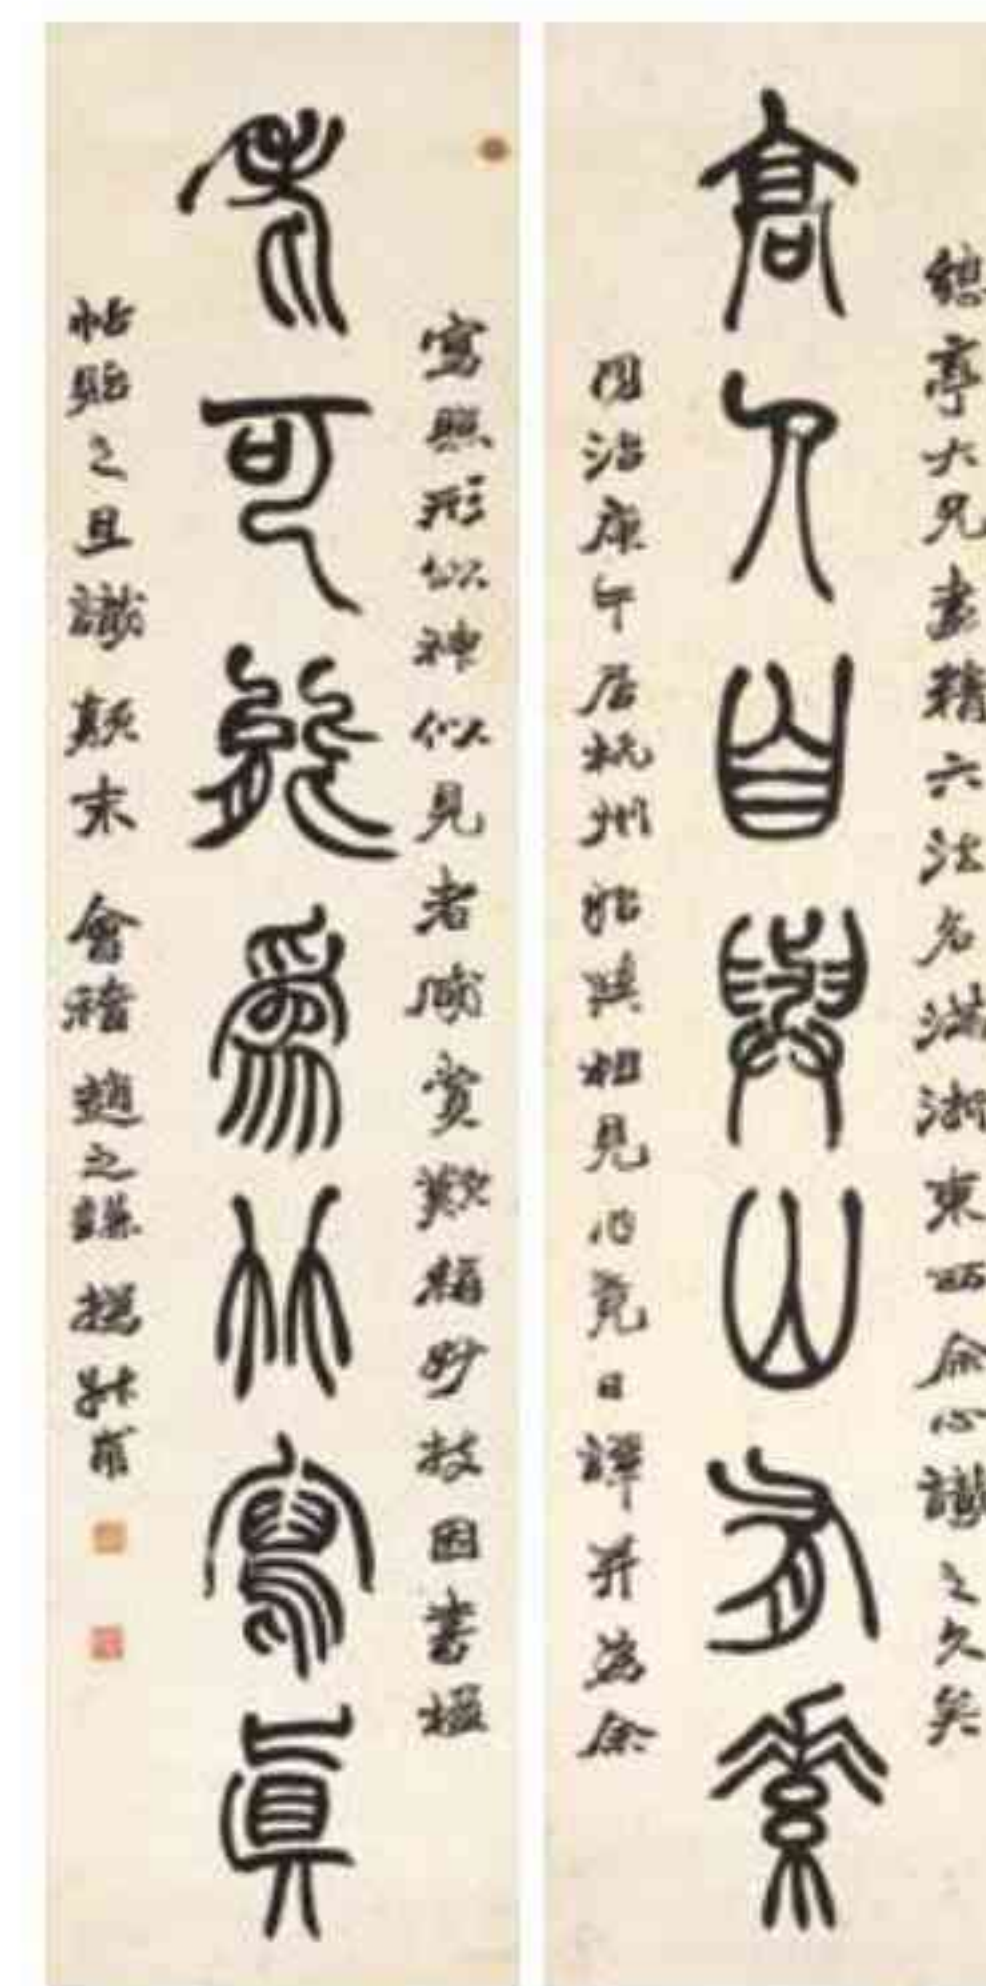 亭大兄畫精六法名滿浙東西余心識之久矣
高人自與山有素
同治庚午居杭州始獲相見作竟日譚并為余
寫照形似神似見者咸賞歎稱妙技因書楹
老可能為竹寫真
帖貽之且識顛末 會稽趙之謙撝叔甫